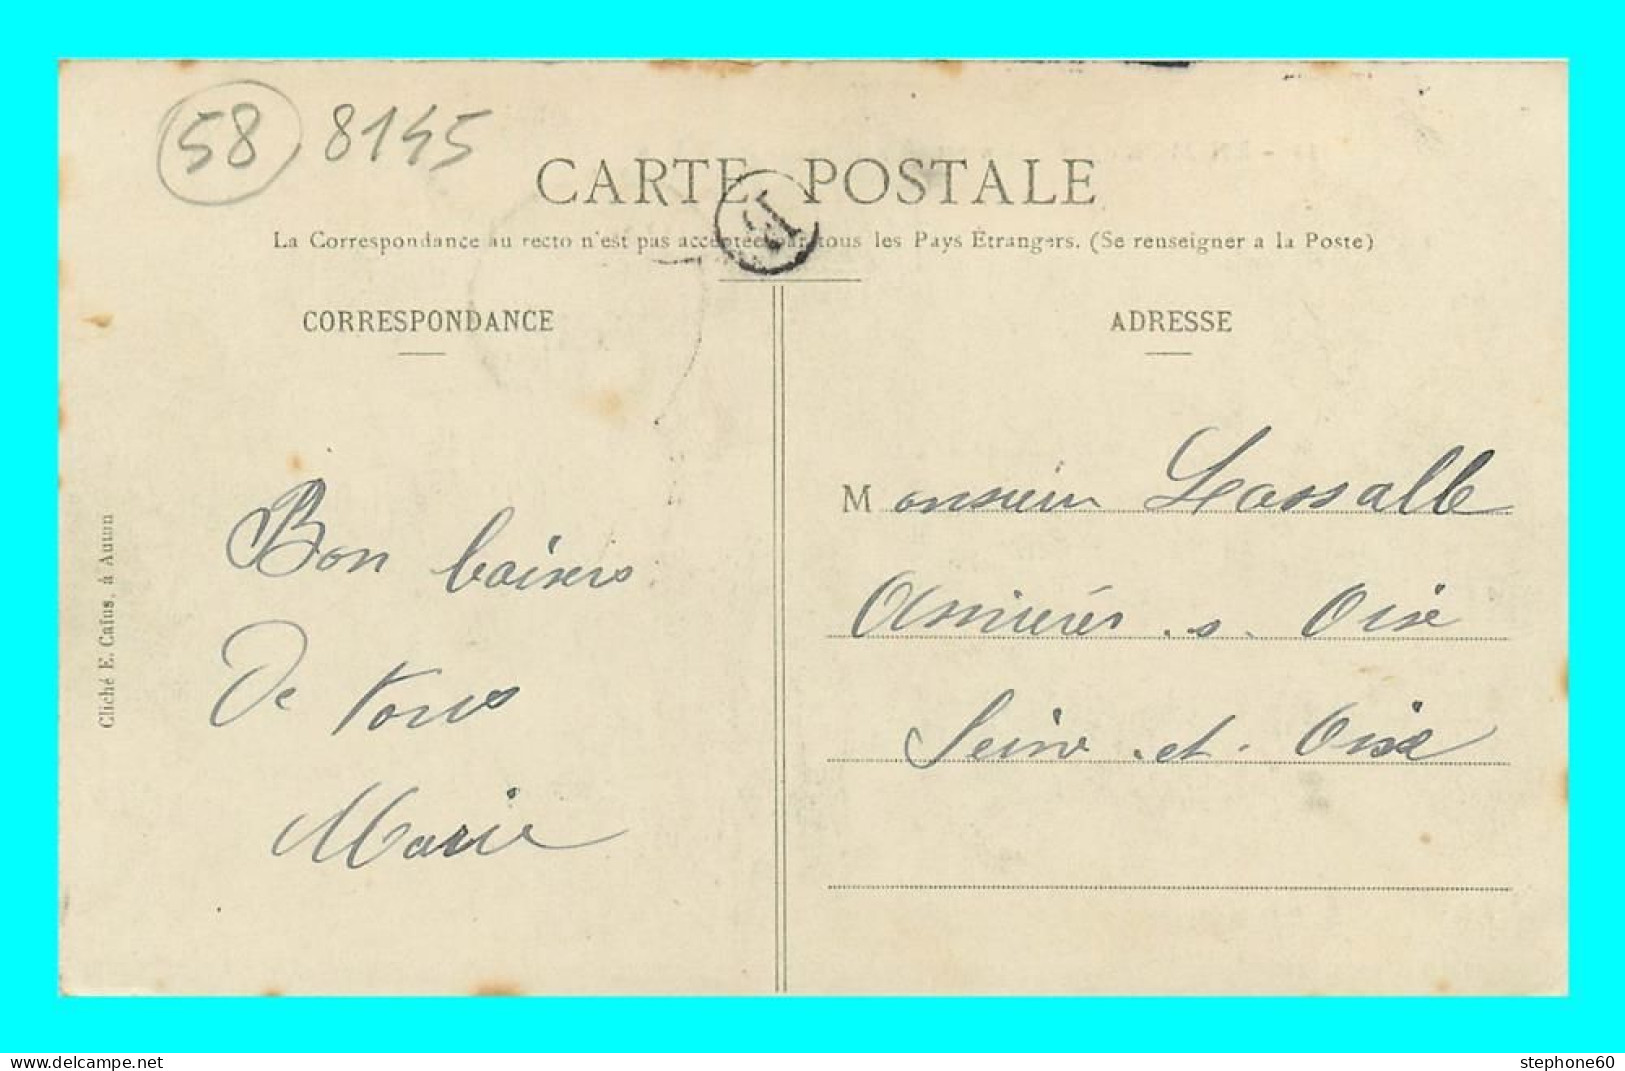 58 8145
CARTE POSTALE
La Correspondance au recto n'est pas acceptée par tous les Pays Étrangers. (Se renseigner a la Poste)
CORRESPONDANCE
Bon baisers
De tous
Marie
Cliché E. Catus, à Autun
ADRESSE
Monsieur Lassalle
Asnières . s . Oise
Seine . et . Oise
www.delcampe.net
stephone60